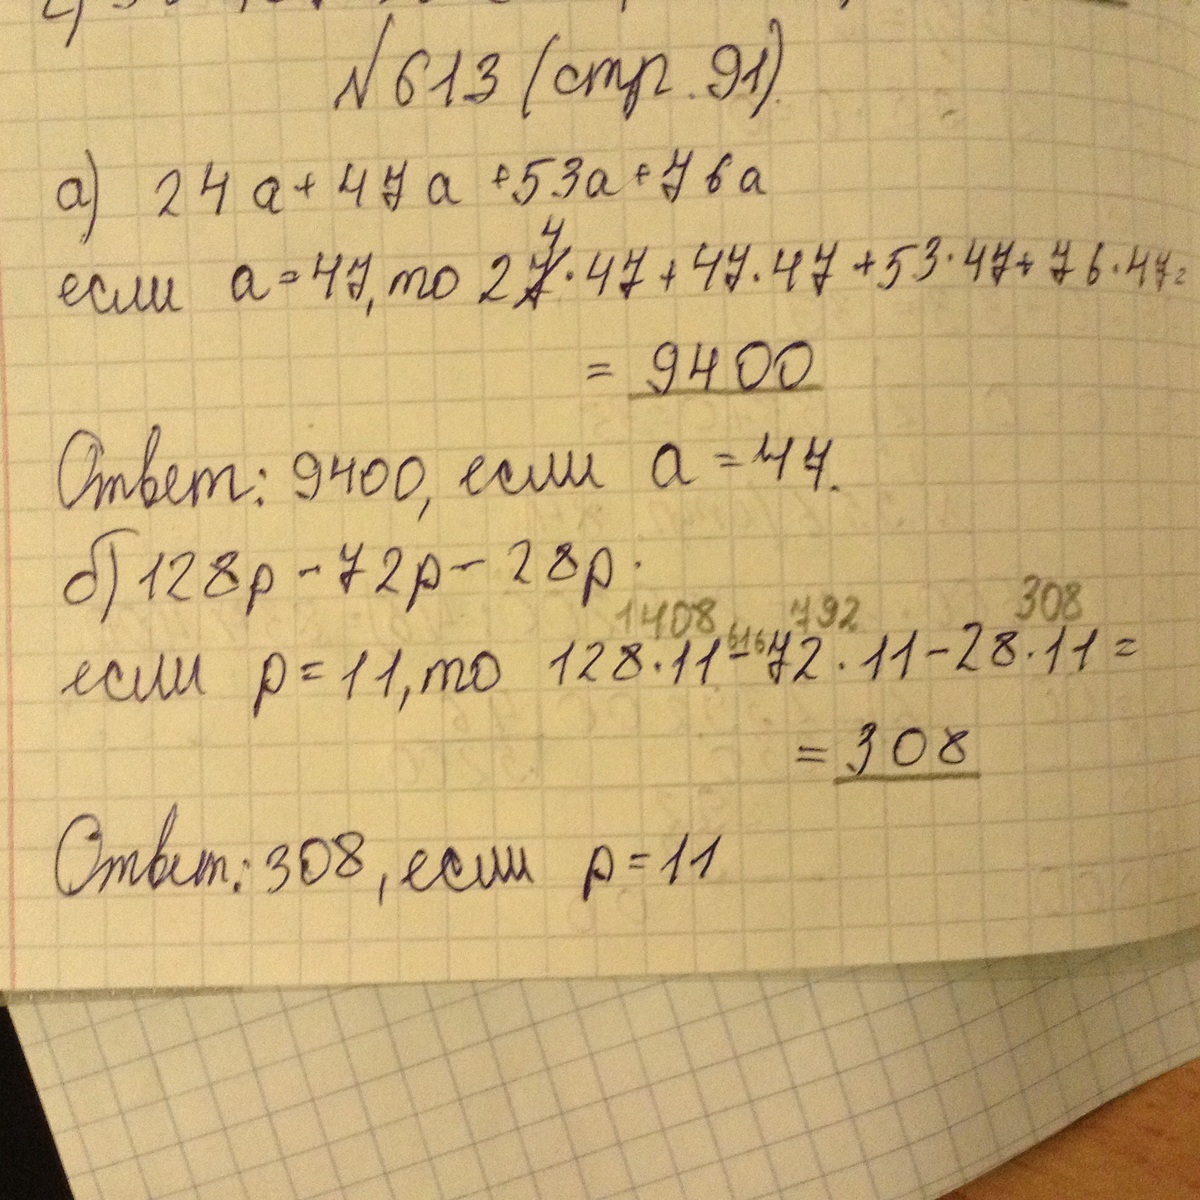 №613 (стр. 91)
а) 24a + 47a + 53a + 76a
если a = 47, то 24·47 + 47·47 + 53·47 + 76·47 =
= 9400
Ответ: 9400, если a = 47.
б) 128p - 72p - 28p.
1408 616 792 308
если p = 11, то 128·11 - 72·11 - 28·11 =
= 308
Ответ: 308, если p = 11